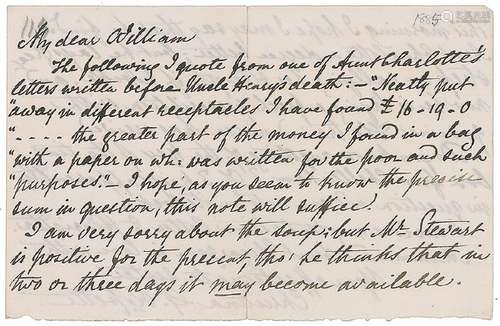 1885
My dear William
The following I quote from one of Aunt Charlotte's
letters written before Uncle Henry's death:- "Neatly put
"away in different receptacles I have found £16-19-0
".... the greater part of the money I found in a bag
"with a paper on wh: was written for the poor and such
"purposes."- I hope, as you seem to know the precise
sum in question, this note will suffice!
I am very sorry about the soup; but Mr Stewart
is positive for the present, tho' he thinks that in
two or three days it may become available.